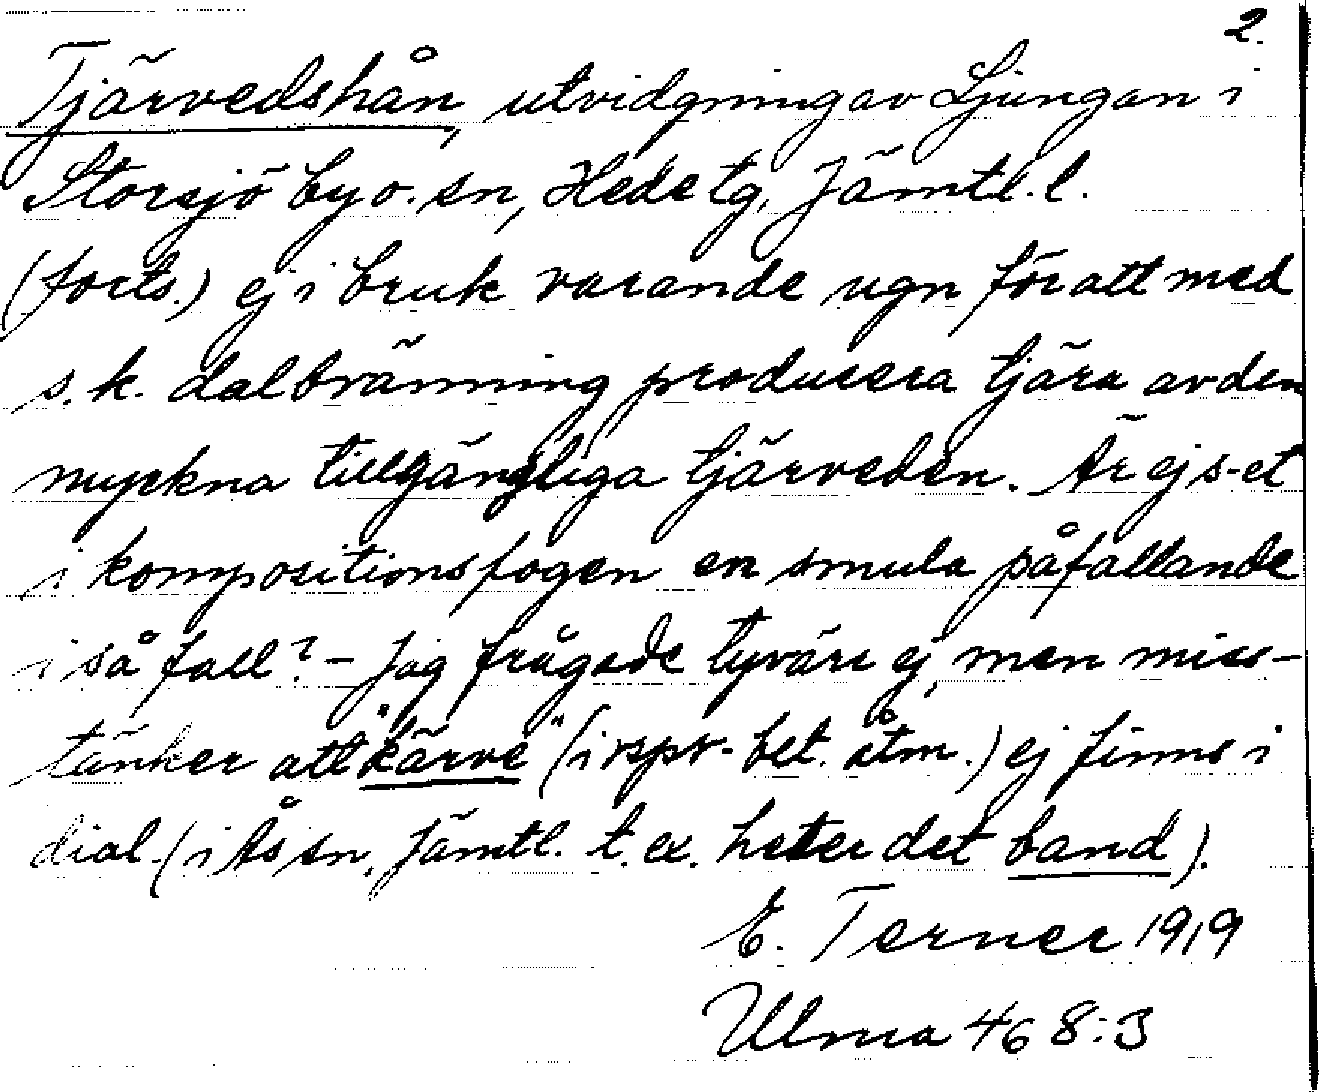 2.
Tjärvedshån, utvidgning av Ljungan i
Storsjö by o. sn, Hede tg, Jämtl. l.
(forts.) ej i bruk varande ugn för att med
s.k. dalbränning producera tjära av den
myckna tillgängliga tjärveden. Är ej s-et
i kompositionsfogen en smula påfallande
i så fall? – Jag frågade tyvärr ej, men miss-
tänker att "kärve" (i rspr-bet. åtm.) ej finns i
dial. (i Ås sn, Jämtl. t.ex. heter det band).
E. Terner 1919
Ulma 468:3